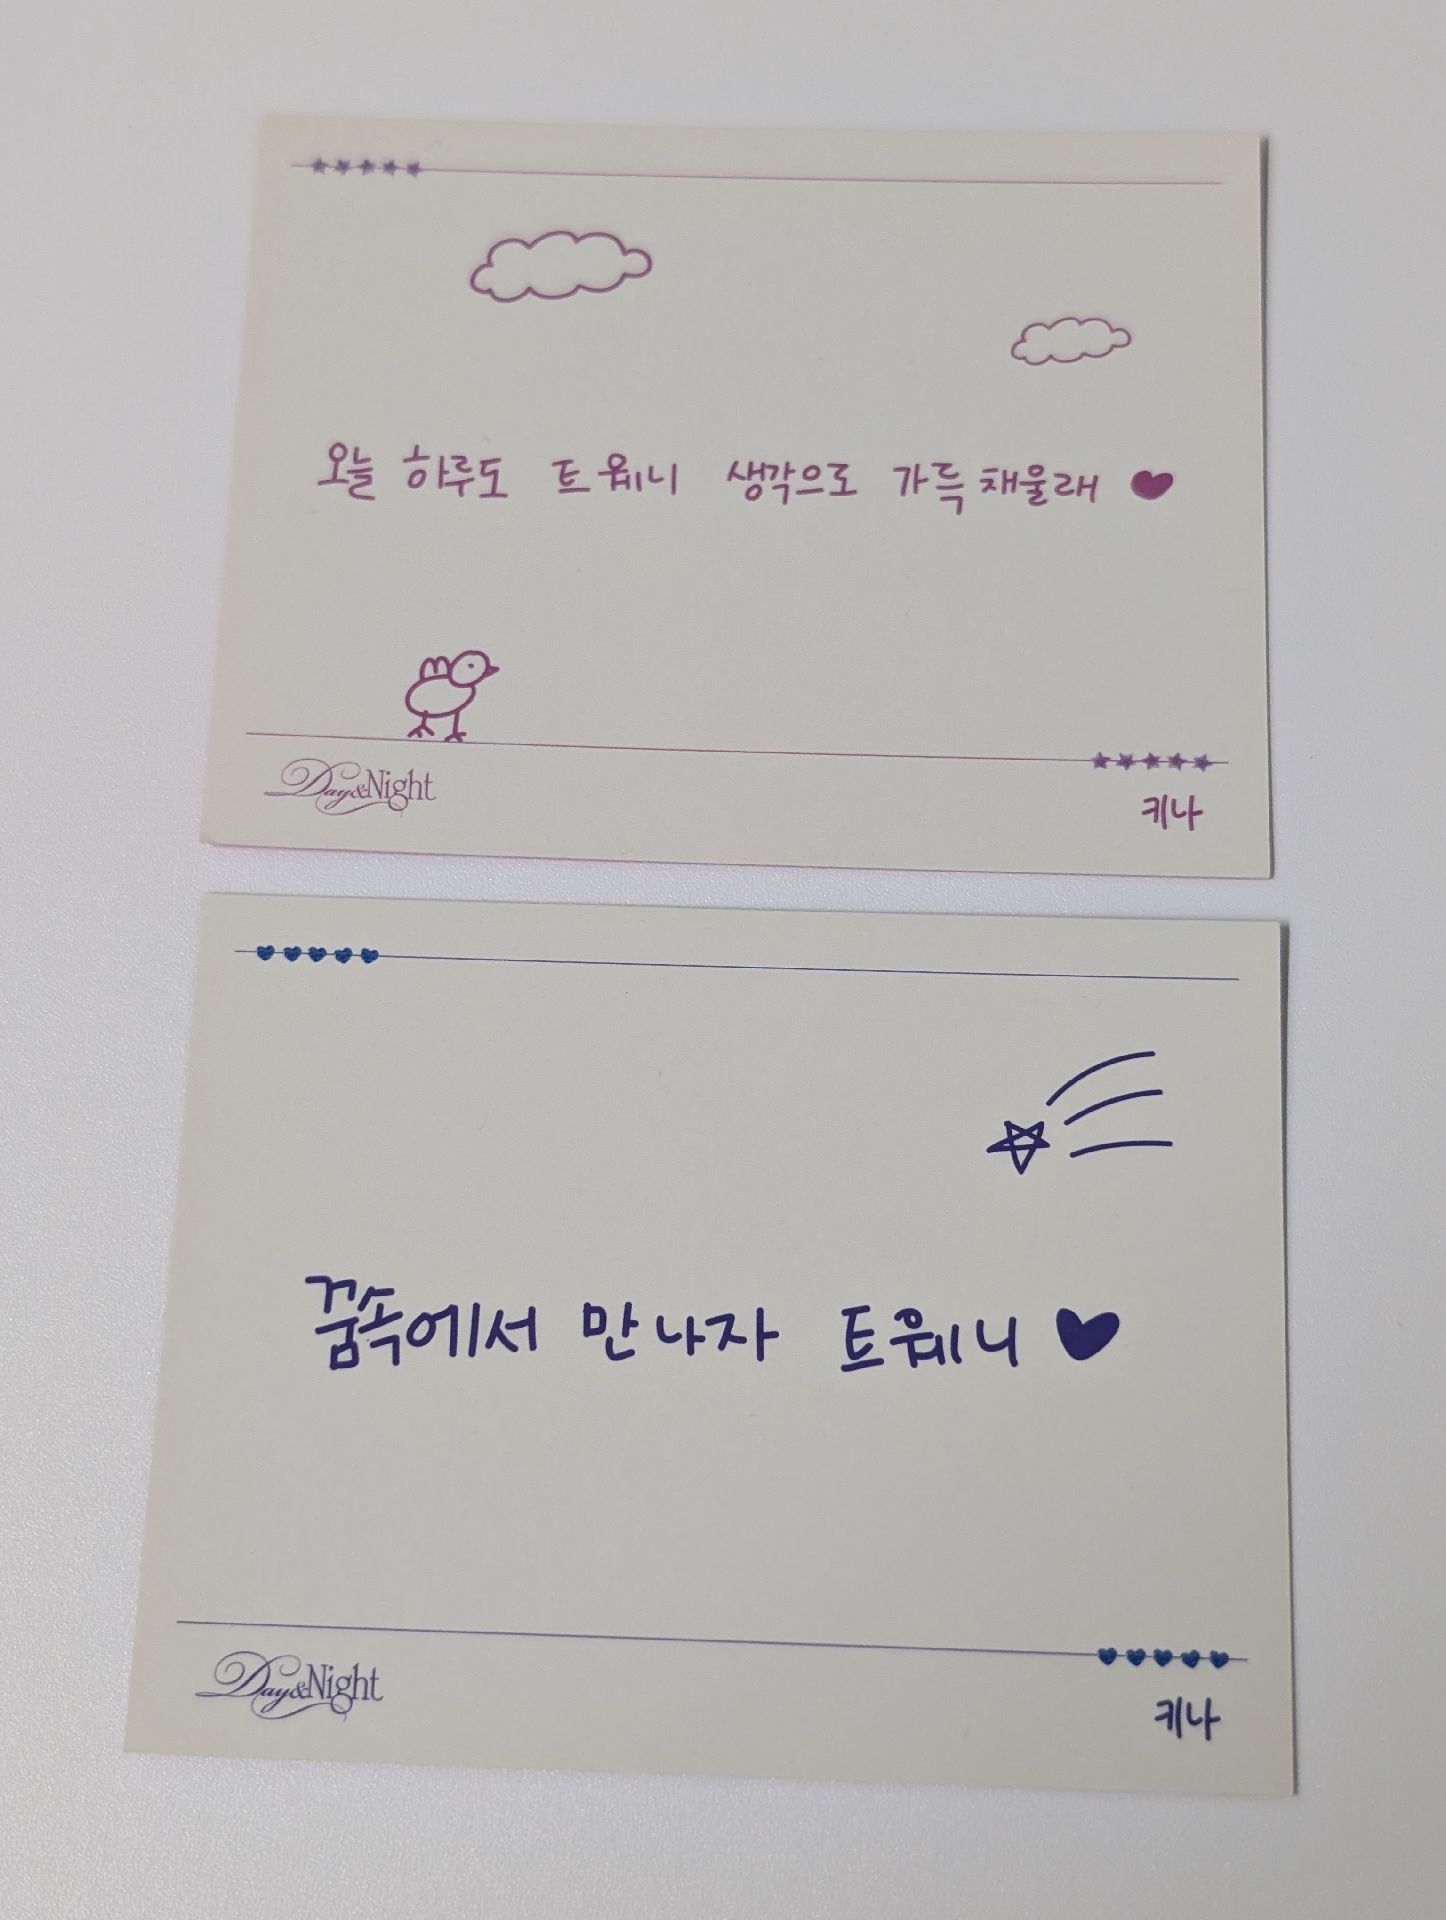 오늘 하루도 트웨니 생각으로 가득 채울래
Day&Night
키나
꿈속에서 만나자 트웨니
Day&Night
키나